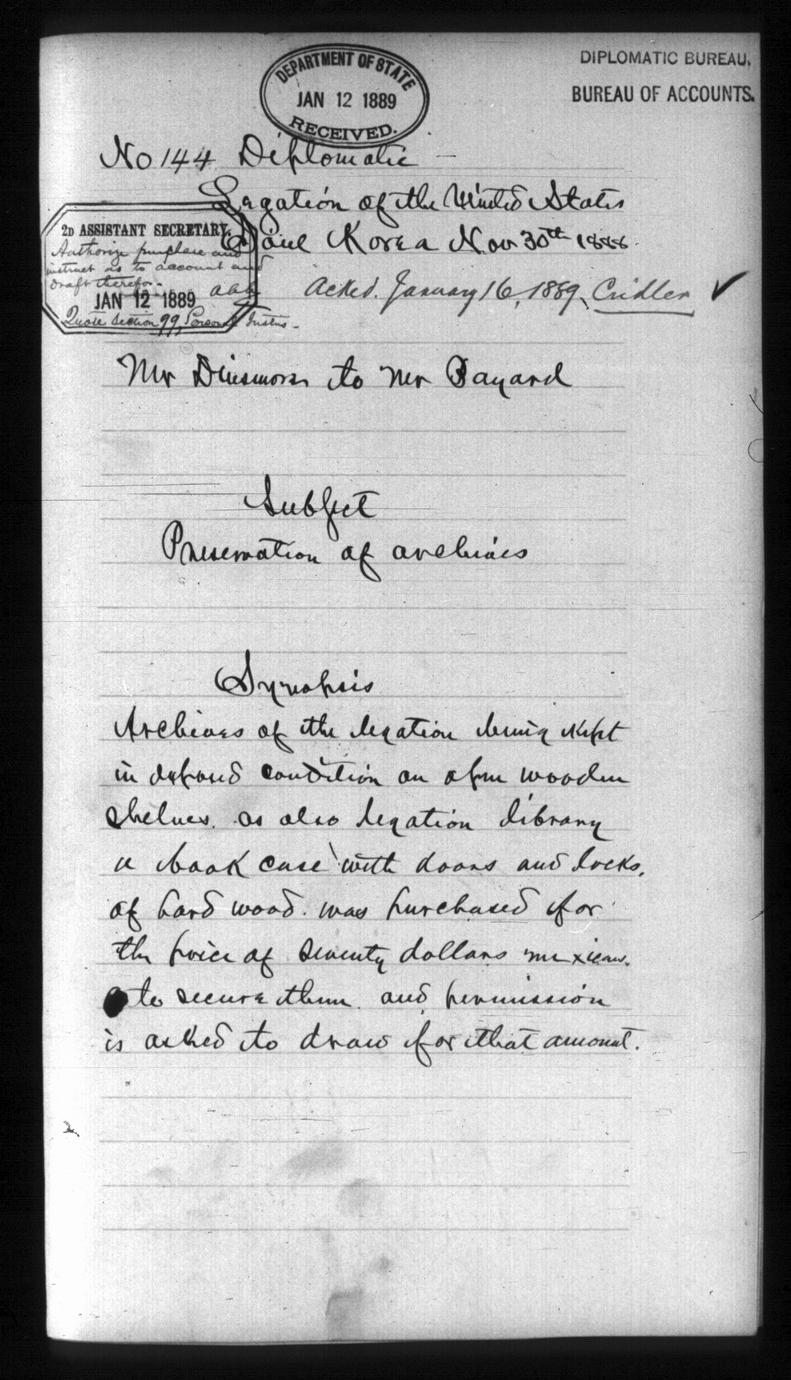 DEPARTMENT OF STATE
JAN 12 1889
RECEIVED.
DIPLOMATIC BUREAU.
BUREAU OF ACCOUNTS.
No 144 Diplomatic
Legation of the United States
Söul Korea Nov 30th 1888.
2D ASSISTANT SECRETARY.
Authorize purchase and
instruct as to account and
draft therefor.
JAN 12 1889
aaa
Quote section 99, Personal Instns.
Acked. January 16, 1889, Cridler
Mr Dinsmore to Mr Bayard
Subject
Preservation of archives
Synopsis
Archives of the legation being kept
in exposed condition on open wooden
shelves. as also legation library
a book case with doors and locks,
of hard wood. was purchased for
the price of seventy dollars mexican.
to secure them. and permission
is asked to draw for that amount.